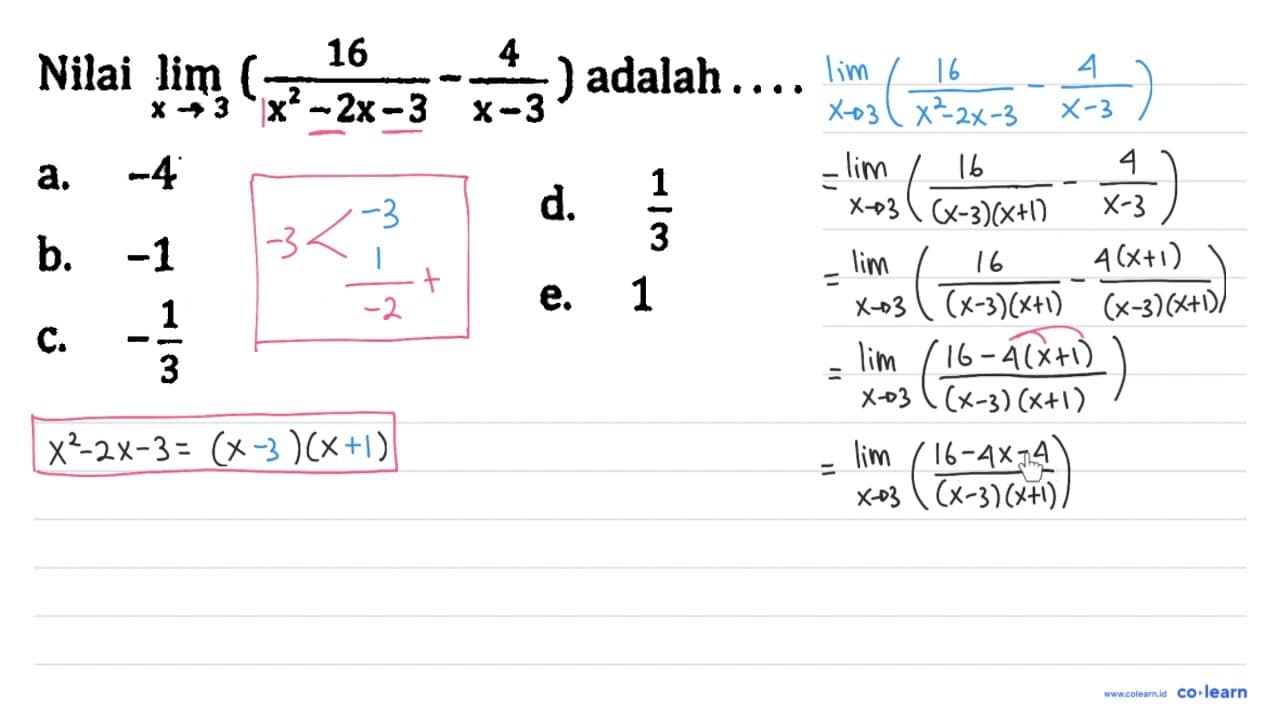 Nilai lim x→3 (16/(x²-2x-3) - 4/(x-3)) adalah ....
a. -4
b. -1
c. -1/3
d. 1/3
e. 1
-3 < -3
1
+
-2
x²-2x-3 = (x-3)(x+1)
lim x→3 (16/(x²-2x-3) - 4/(x-3))
= lim x→3 (16/((x-3)(x+1)) - 4/(x-3))
= lim x→3 (16/((x-3)(x+1)) - 4(x+1)/((x-3)(x+1)))
= lim x→3 ((16-4(x+1))/((x-3)(x+1)))
= lim x→3 ((16-4x-4)/((x-3)(x+1)))
www.colearn.id co·learn